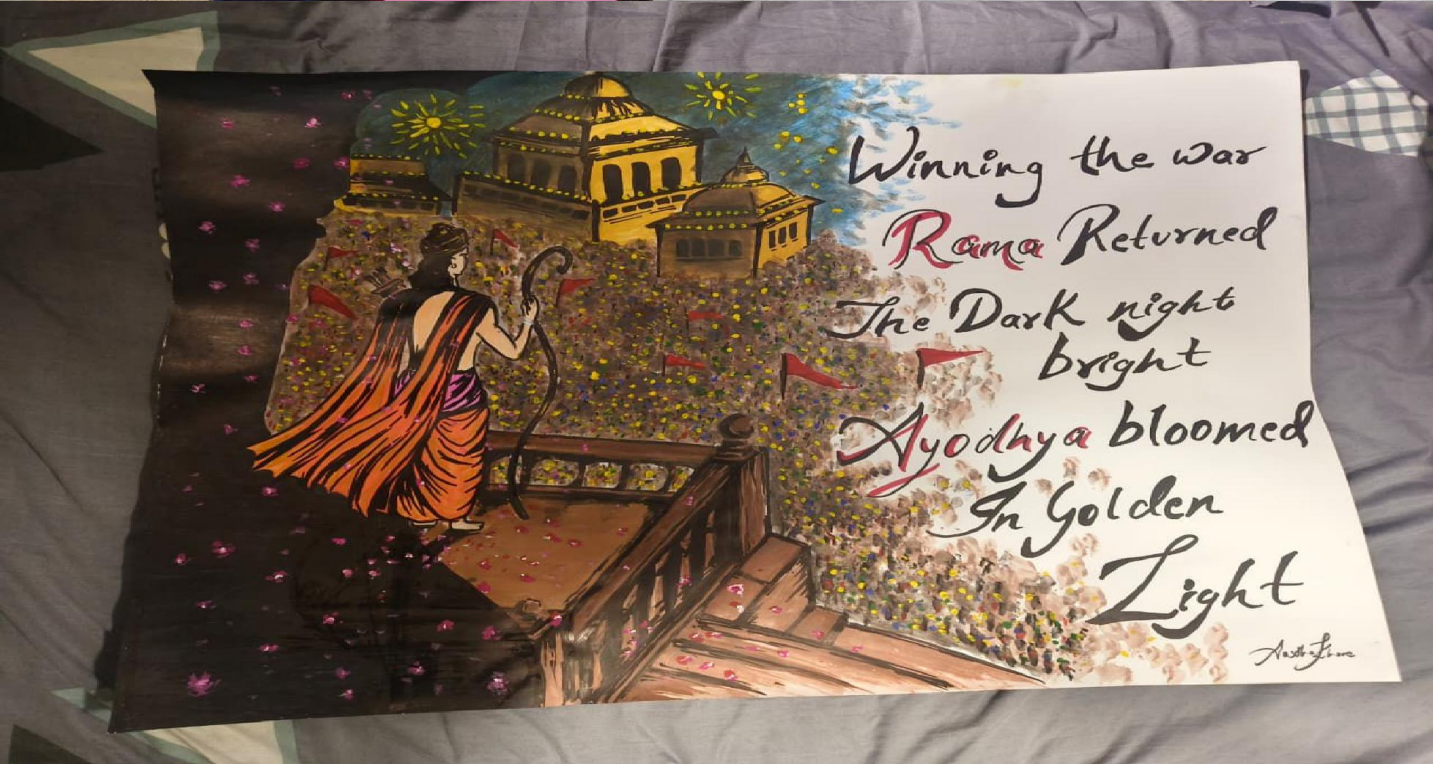 Winning the war
Rama Returned
The Dark night
bright
Ayodhya bloomed
In Golden
Light